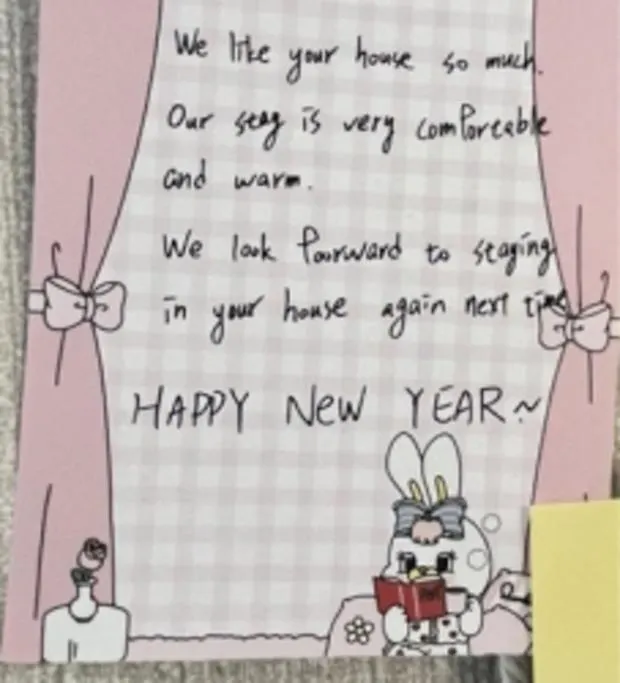 We like your house so much.
Our stay is very comforcable
and warm.
We look foorward to staying
in your house again next time
HAPPY NEW YEAR~